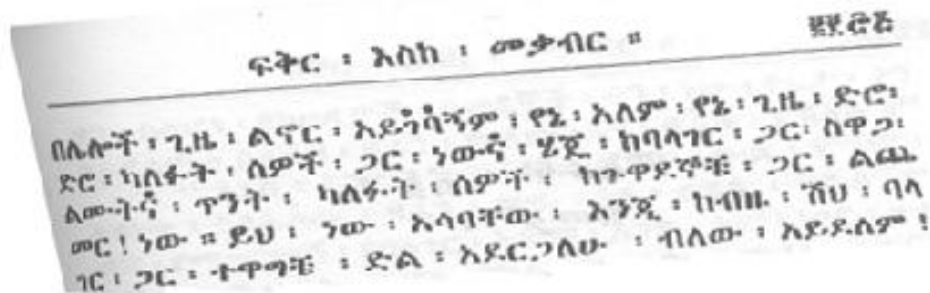 ፍቅር ፡ እስከ ፡ መቃብር ። ፭፻፸፭
በሌሎች ፡ ጊዜ ፡ ልኖር ፡ አይገባኝም ፡ የኔ ፡ አለም ፡ የኔ ፡ ጊዜ ፡ ድሮ፡
ድሮ ፡ ካለፉት ፡ ሰዎች ፡ ጋር ፡ ነውና ፡ ሄጄ ፡ ከባላገር ፡ ጋር፡ ስዋጋ፡
ልሙትና ፡ ጥንት ፡ ካለፉት ፡ ሰዎች ፡ ከጉዋደኞቼ ፡ ጋር ፡ ልጨ
መር! ነው ። ይህ ፡ ነው ፡ አሳባቸው ፡ እንጂ ፡ ከብዙ ፡ ሽህ ፡ ባላ
ገር ፡ ጋር ፡ ተዋግቼ ፡ ድል ፡ አደርጋለሁ ፡ ብለው ፡ አይደለም !